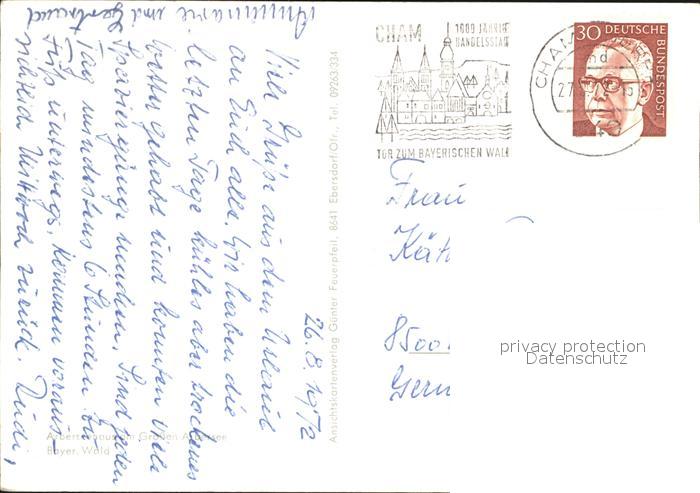 26.8.1972
Viele Grüße aus dem Urlaub
an Euch alle. Wir haben die
letzten Tage kühles aber trockenes
Wetter gehabt und konnten viele
Spaziergänge machen. Sind jeden
Tag mindestens 6 Stunden zu
Fuß unterwegs. Kommen voraus-
sichtlich Mittwoch zurück.
Annemarie und
Ansichtskartenverlag Günter Feuerpfeil, 8641 Ebersdorf/Ofr. Tel. 09263/334
Bayer. Wald
CHAM
TOR ZUM BAYERISCHEN WALD
CHAM
27
30
DEUTSCHE
BUNDESPOST
Frau
Kät
8500
Germ
privacy protection
Datenschutz